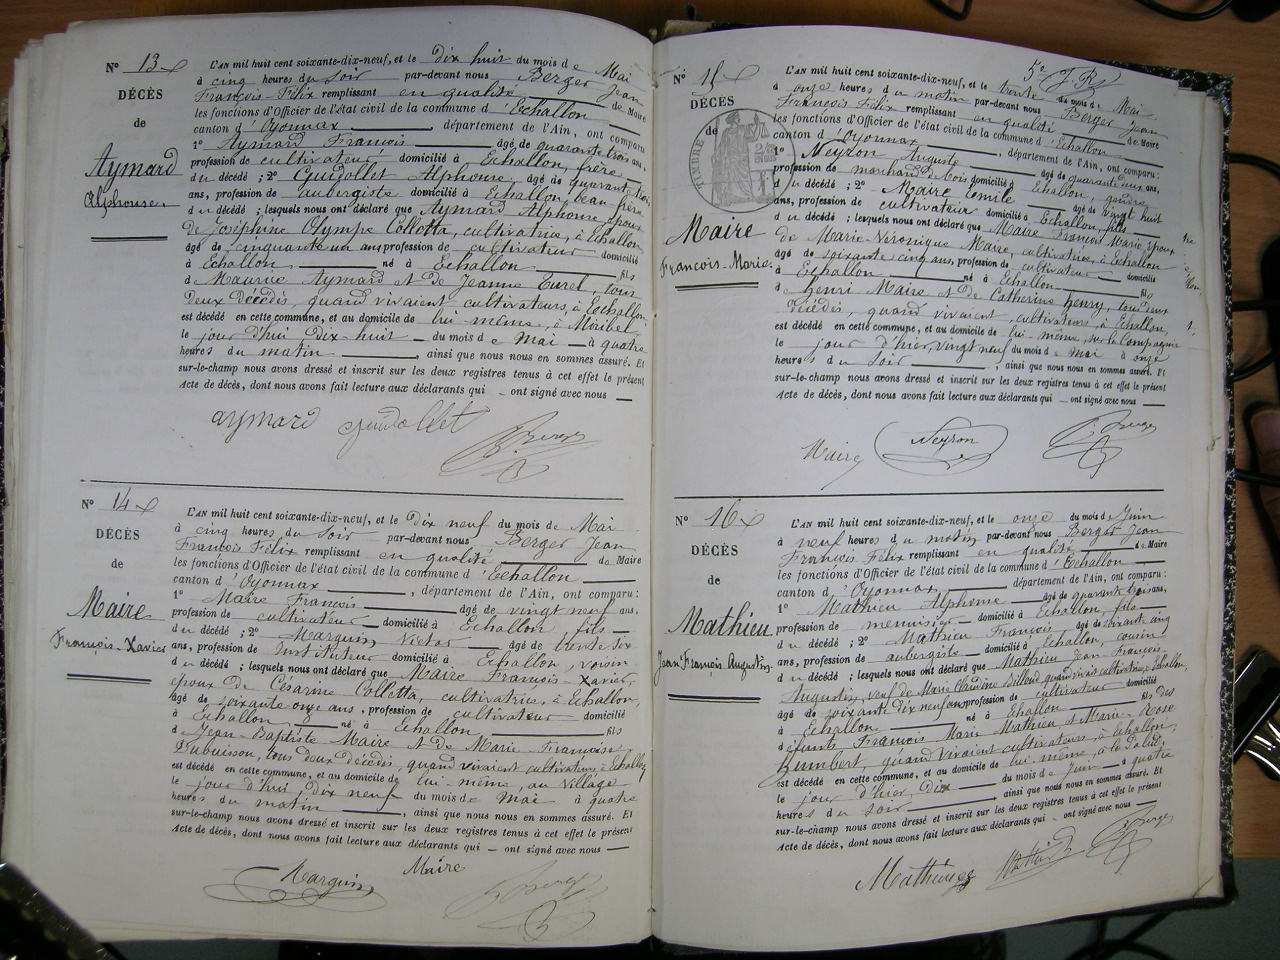 N° 13
DÉCÈS
de
Aymard
Alphonse
L'AN mil huit cent soixante-dix-neuf, et le dix huit du mois de Mai
à cinq heures du Soir par-devant nous Berger Jean
François Félix remplissant en qualité de Maire
les fonctions d'Officier de l'état civil de la commune d'Echallon
canton d'Oyonnax, département de l'Ain, ont comparu
1° Aymard François âgé de quarante trois ans,
profession de cultivateur domicilié à Echallon, frère
du décédé ; 2° Guidollet Alphonse âgé de quarante trois
ans, profession de aubergiste domicilié à Echallon beau frère
du décédé ; lesquels nous ont déclaré que Aymard Alphonse époux
de Joséphine Olympe Colletta, cultivatrice, à Echallon
âgé de cinquante un ans profession de cultivateur domicilié
à Echallon né à Echallon fils
de Maurice Aymard et de Jeanne Eurel, tous
deux décédés, quand vivaient cultivateurs, à Echallon,
est décédé en cette commune, et au domicile de lui même, à Miribel
le jour d'hui dix-huit du mois de Mai à quatre
heures du matin, ainsi que nous nous en sommes assuré.
sur-le-champ nous avons dressé et inscrit sur les deux registres tenus à cet effet le présent
acte de décès, dont nous avons fait lecture aux déclarants qui ont signé avec nous
aymard Guidollet Berger
N° 14
DÉCÈS
de
Maire
François-Xavier
L'AN mil huit cent soixante-dix-neuf, et le Dix neuf du mois de Mai
à cinq heures du Soir par-devant nous Berger Jean
François Félix remplissant en qualité de Maire
les fonctions d'Officier de l'état civil de la commune d'Echallon
canton d'Oyonnax, département de l'Ain, ont comparu :
1° Maire François âgé de vingt neuf ans,
profession de cultivateur domicilié à Echallon fils
du décédé ; 2° Marquin Victor âgé de trente six
ans, profession de Instituteur domicilié à Echallon, voisin
du décédé ; lesquels nous ont déclaré que Maire François-Xavier,
époux de Césarine Colletta, cultivatrice, à Echallon,
âgé de soixante onze ans, profession de cultivateur domicilié
à Echallon né à Echallon fils
de Jean-Baptiste Maire et de Marie-Françoise
Dubuisson, tous deux décédés, quand vivaient cultivateurs à Echallon
est décédé en cette commune, et au domicile de lui-même, au Village
le jour d'hui, Dix neuf du mois de Mai à quatre
heures du matin, ainsi que nous nous en sommes assuré. Et
sur-le-champ nous avons dressé et inscrit sur les deux registres tenus à cet effet le présent
acte de décès, dont nous avons fait lecture aux déclarants qui ont signé avec nous
Marquin Maire Berger
5e J. B.
N° 15
DÉCÈS
de
TIMBRE
Maire
François-Marie
L'AN mil huit cent soixante-dix-neuf, et le trente du mois de Mai
à onze heures du matin par-devant nous Berger Jean
François Félix remplissant en qualité de Maire
les fonctions d'Officier de l'état civil de la commune d'Echallon
canton d'Oyonnax, département de l'Ain, ont comparu :
1° Neyron Auguste âgé de quarante deux ans,
profession de marchand de bois domicilié à Echallon, gendre
du décédé ; 2° Maire Emile âgé de vingt huit
ans, profession de cultivateur domicilié à Echallon, fils
du décédé ; lesquels nous ont déclaré que Maire François Marie, époux
de Marie-Véronique Maire, cultivatrice, à Echallon
âgé de soixante cinq ans, profession de cultivateur domicilié
à Echallon né à Echallon fils
de Henri Maire et de Catherine Henry, tous deux
décédés, quand vivaient cultivateurs, à Echallon,
est décédé en cette commune, et au domicile de lui-même, sur la Compagnie
le jour d'hier, vingt neuf du mois de Mai à onze
heures du Soir, ainsi que nous nous en sommes assuré. Et
sur-le-champ nous avons dressé et inscrit sur les deux registres tenus à cet effet le présent
acte de décès, dont nous avons fait lecture aux déclarants qui ont signé avec nous
Maire Neyron Berger
N° 16
DÉCÈS
de
Mathieu
Jean François Augustin
L'AN mil huit cent soixante-dix-neuf, et le onze du mois de Juin
à neuf heures du matin par-devant nous Berger Jean
François Félix remplissant en qualité de Maire
les fonctions d'Officier de l'état civil de la commune d'Echallon
canton d'Oyonnax, département de l'Ain, ont comparu :
1° Mathieu Alphonse âgé de quarante trois ans,
profession de menuisier domicilié à Echallon, fils
du décédé ; 2° Mathieu François âgé de soixante cinq
ans, profession de aubergiste domicilié à Echallon, cousin
du décédé ; lesquels nous ont déclaré que Mathieu Jean-François
Augustin, veuf de Marie Claudine Dilloud quand vivait cultivatrice à Echallon,
âgé de soixante dix neuf ans profession de cultivateur domicilié
à Echallon né à Echallon fils des
défunts François Marie Mathieu et Marie-Rose
Humbert, quand vivaient cultivateurs à Echallon
est décédé en cette commune, et au domicile de lui même, à
le jour d'hier Dix du mois de Juin à quatre
heures du soir, ainsi que nous nous en sommes assuré. Et
sur-le-champ nous avons dressé et inscrit sur les deux registres tenus à cet effet le présent
acte de décès, dont nous avons fait lecture aux déclarants qui ont signé avec nous
Mathieu Mathieu Berger